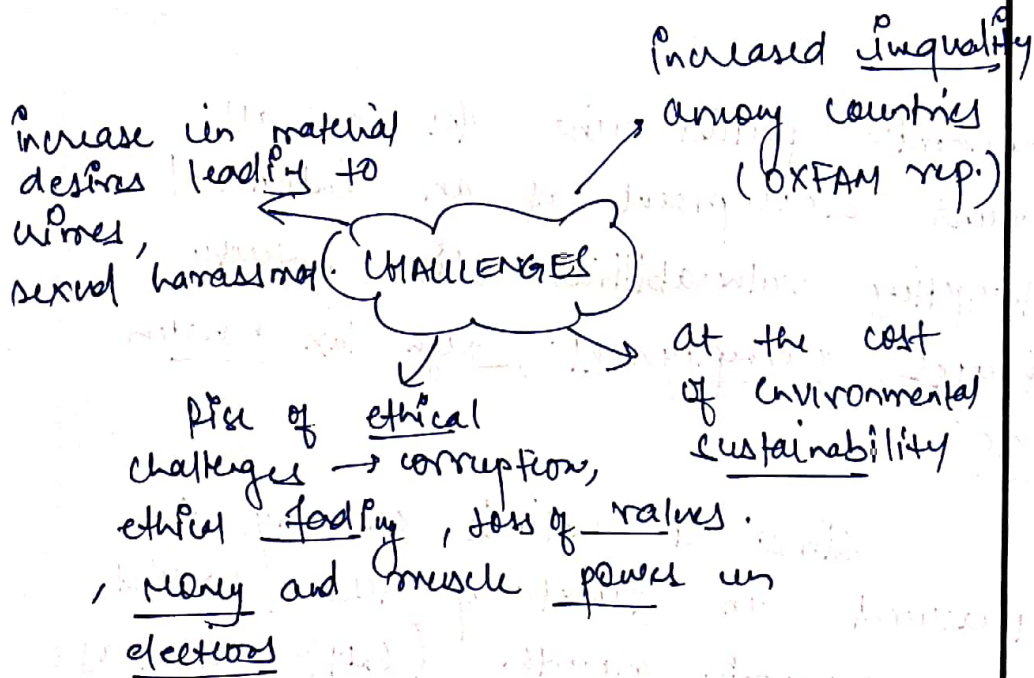 increased inequality
among countries
(OXFAM rep.)
increase in material
desires leading to
crimes,
sexual harassment.
CHALLENGES
at the cost
of environmental
sustainability
Rise of ethical
challenges → corruption,
ethical fading, loss of values.
, money and muscle power in
elections